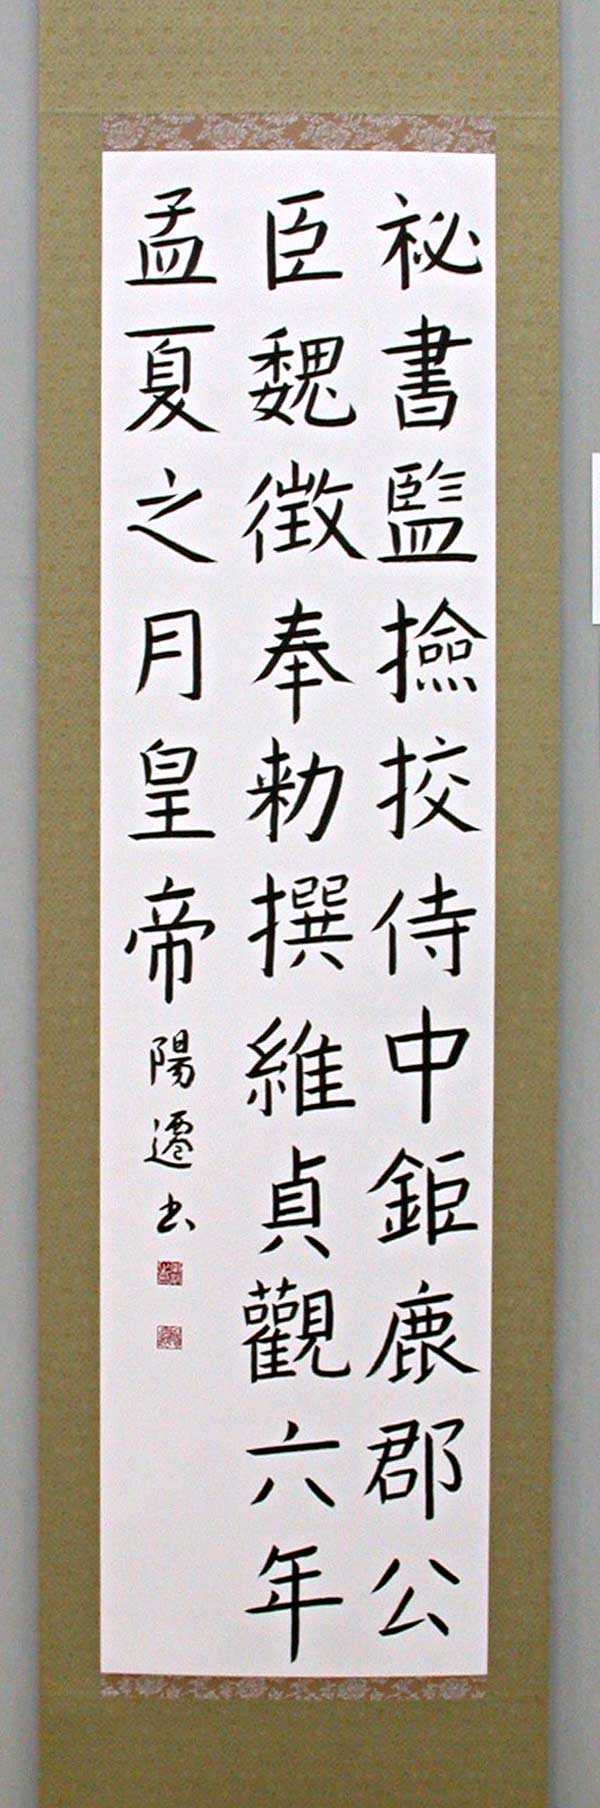 祕書監撿挍侍中鉅鹿郡公
臣魏徵奉勅撰維貞觀六年
孟夏之月皇帝
陽遷书